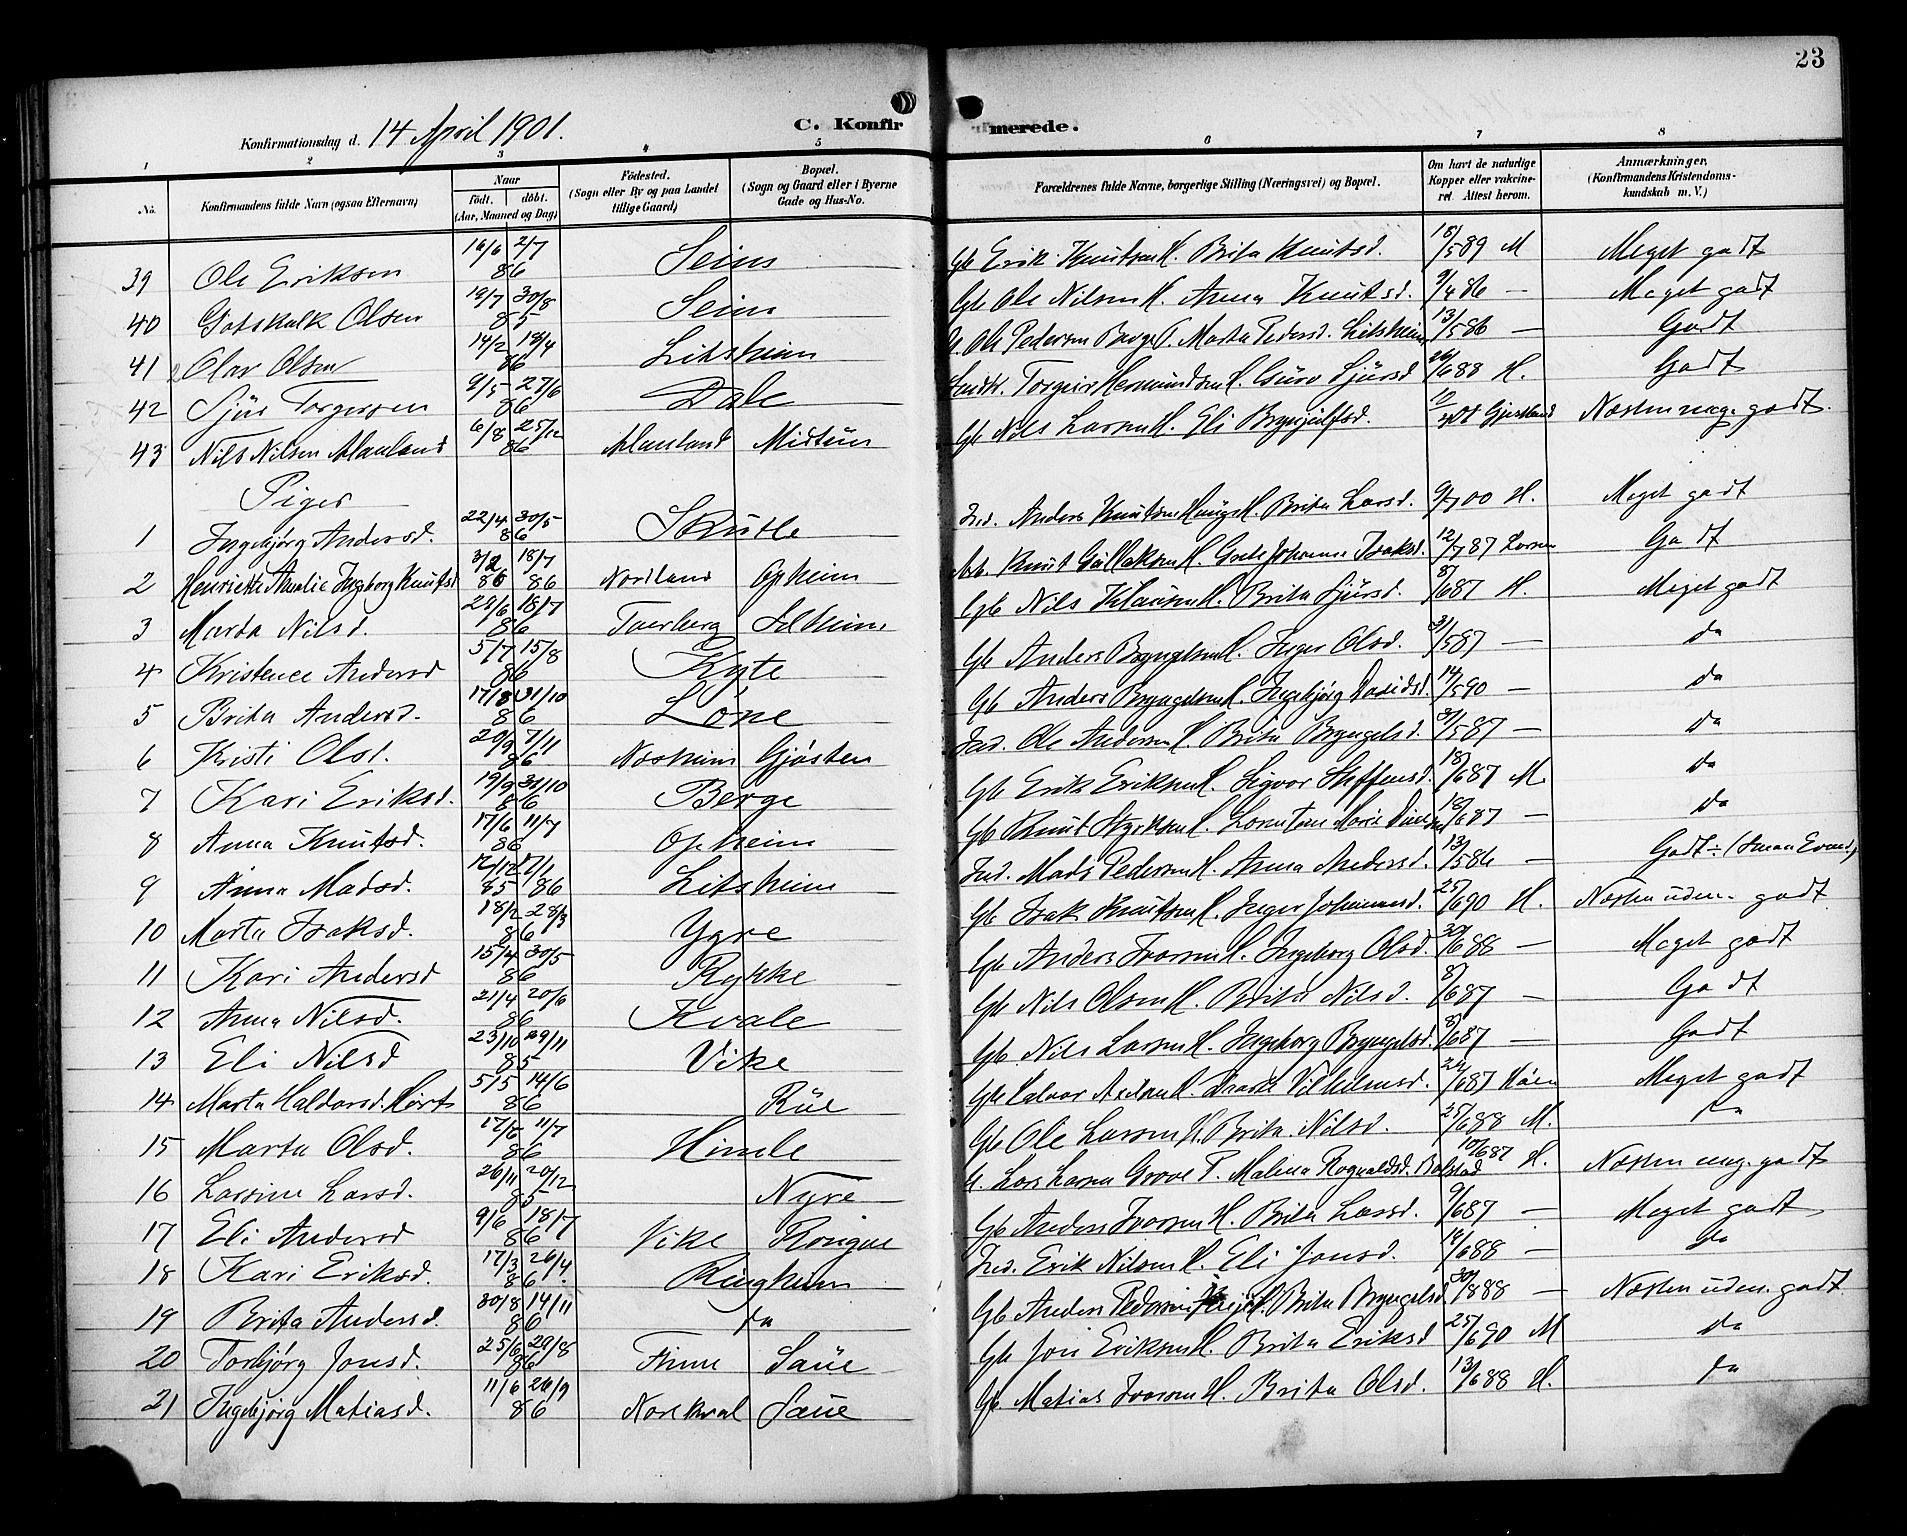 23
Konfirmationsdag d. 14 April 1901.
C. Konfirmerede.
1 2 3 4 5 6 7 8
No. Konfirmandens fulde Navn (ogsaa Efternavn) Naar født. døbt. (Aar, Maaned og Dag) Fødested. (Sogn eller By og paa Landet tillige Gaard) Bopæl. (Sogn og Gaard eller i Byerne Gade og Hus-No. Forældrenes fulde Navne, borgerlige Stilling (Næringsvei) og Bopæl. Om havt de naturlige Kopper eller vakcineret. Attest herom. Anmærkninger. (Konfirmandens Kristendomskundskab m. V.)
39 Ole Eriksen 16/6 2/7 86 Seim Gb Erik Knutsen H. Brita Knutsd. 18/5 89 M Meget godt
40 Gotskalk Olsen 19/7 30/8 85 Seim Gb Ole Nilsen H. Anna Knutsd. 9/4 86 — Meget godt
41 Olav Olsen 14/2 18/4 86 Litsheim U. Ole Pedersen Berge P. Marta Pedersd. Litsheim 13/5 86 — Godt
42 Sjur Torgersen 9/5 27/6 86 Dale Torgeir Hermundsen H. Guro Sjursd 26/6 88 H. Godt
43 Nils Nilsen Afanland 6/8 25/12 86 Midtun Gb Nils Larsen H. Eli Brynjulfsd. Næsten meg. godt.
Piger
1 Ingebjørg Andersd. 22/4 30/5 86 Skutle Ind. Anders Knutsen Hauge H. Brita Larsd. 9/7 00 H. Meget godt
2 Henriette Amalie Ingborg Knutsd 3/2 86 18/7 86 Nordland Opheim Knut H. Johanna Isaksd. 12/7 87 Larsen Godt
3 Marta Nilsd. 28/6 18/7 86 Tverberg Selheim Gb Nils Klausen H. Brita Sjursd. 8/6 87 H. Meget godt
4 Kristence Andersd 5/7 15/8 86 Kyte Gb Anders Bryngelsen H. Inger Olsd. 31/5 87 — da
5 Brita Andersd. 17/8 31/10 86 Løne Gb Anders Bryngelsen H. Ingebjørg Davidsd. 14/5 90 — da
6 Kristi Olsd. 20/9 7/11 86 Nosheim Gjøsten Ind. Ole Andersen H. Brita Bryngelsd. 31/5 87 — da
7 Kari Eriksd. 19/9 31/10 86 Berge Gb Erik Eriksen H. Sigvor Steffensd. 18/6 87 M. da
8 Anna Knutsd. 17/6 11/7 86 Opheim Gb Knut Styrksen H. Marie 18/6 87 — da
9 Anna Madsd. 12/12 85 17/1 86 Litsheim Ind. Mads Pedersen H. Anna Andersd. 13/5 86 — Godt ÷ (smaa Evner)
10 Marta Isaksd. 18/2 28/3 86 Ygre Gb Isak Knutsen H. Inger Johannesd. 25/6 90 H. Næsten uden. godt
11 Kari Andersd 15/4 30/5 86 Rykke Gb Anders Ivarsen H. Ingeborg Olsd. 30/6 88 — Meget godt
12 Anna Nilsd. 21/4 20/6 86 Kvale Gb Nils Olsen H. Brita Nilsd. 8/6 87 — Godt
13 Eli Nilsd 23/10 29/11 85 Vike Gb Nils Larsen H. Ingeborg Bryngelsd. 8/6 87 — Godt
14 Marta Haldorsd. 5/5 14/6 86 Rue Gb Vilhelmsd. 24/6 87 Meget godt
15 Marta Olsd. 17/6 11/7 86 Himle Gb Ole Larsen H. Brita Nilsd. 25/6 88 M. da
16 Larsine Larsd. 26/11 20/12 85 Nyre U. Lars Larsen Grove P. Malena Rognaldsd. Bolstad 10/6 87 H. Næsten meg. godt
17 Eli Andersd 9/6 18/7 86 Vike Rongve Gb Anders Ivarsen H. Brita Larsd. 9/6 87 — Meget godt
18 Kari Eriksd. 17/3 26/4 86. Ringheim Ind. Erik Nilsen H. Eli Jonsd. 18/6 88 — da
19 Brita Andersd. 30/8 14/11 86 da Gb Anders Pedersen H. Brita Bryngelsd. 30/8 88 — Næsten uden. godt
20 Torbjørg Jonsd. 25/6 29/8 86 Finne Saue Gb Jon Eriksen H. Brita Eriksd 25/6 90 M da
21 Ingebjørg Matiasd. 11/6 26/9 86 Norekval Saue Gb Matias Ivarsen H. Brita Olsd. 13/6 88 H. da